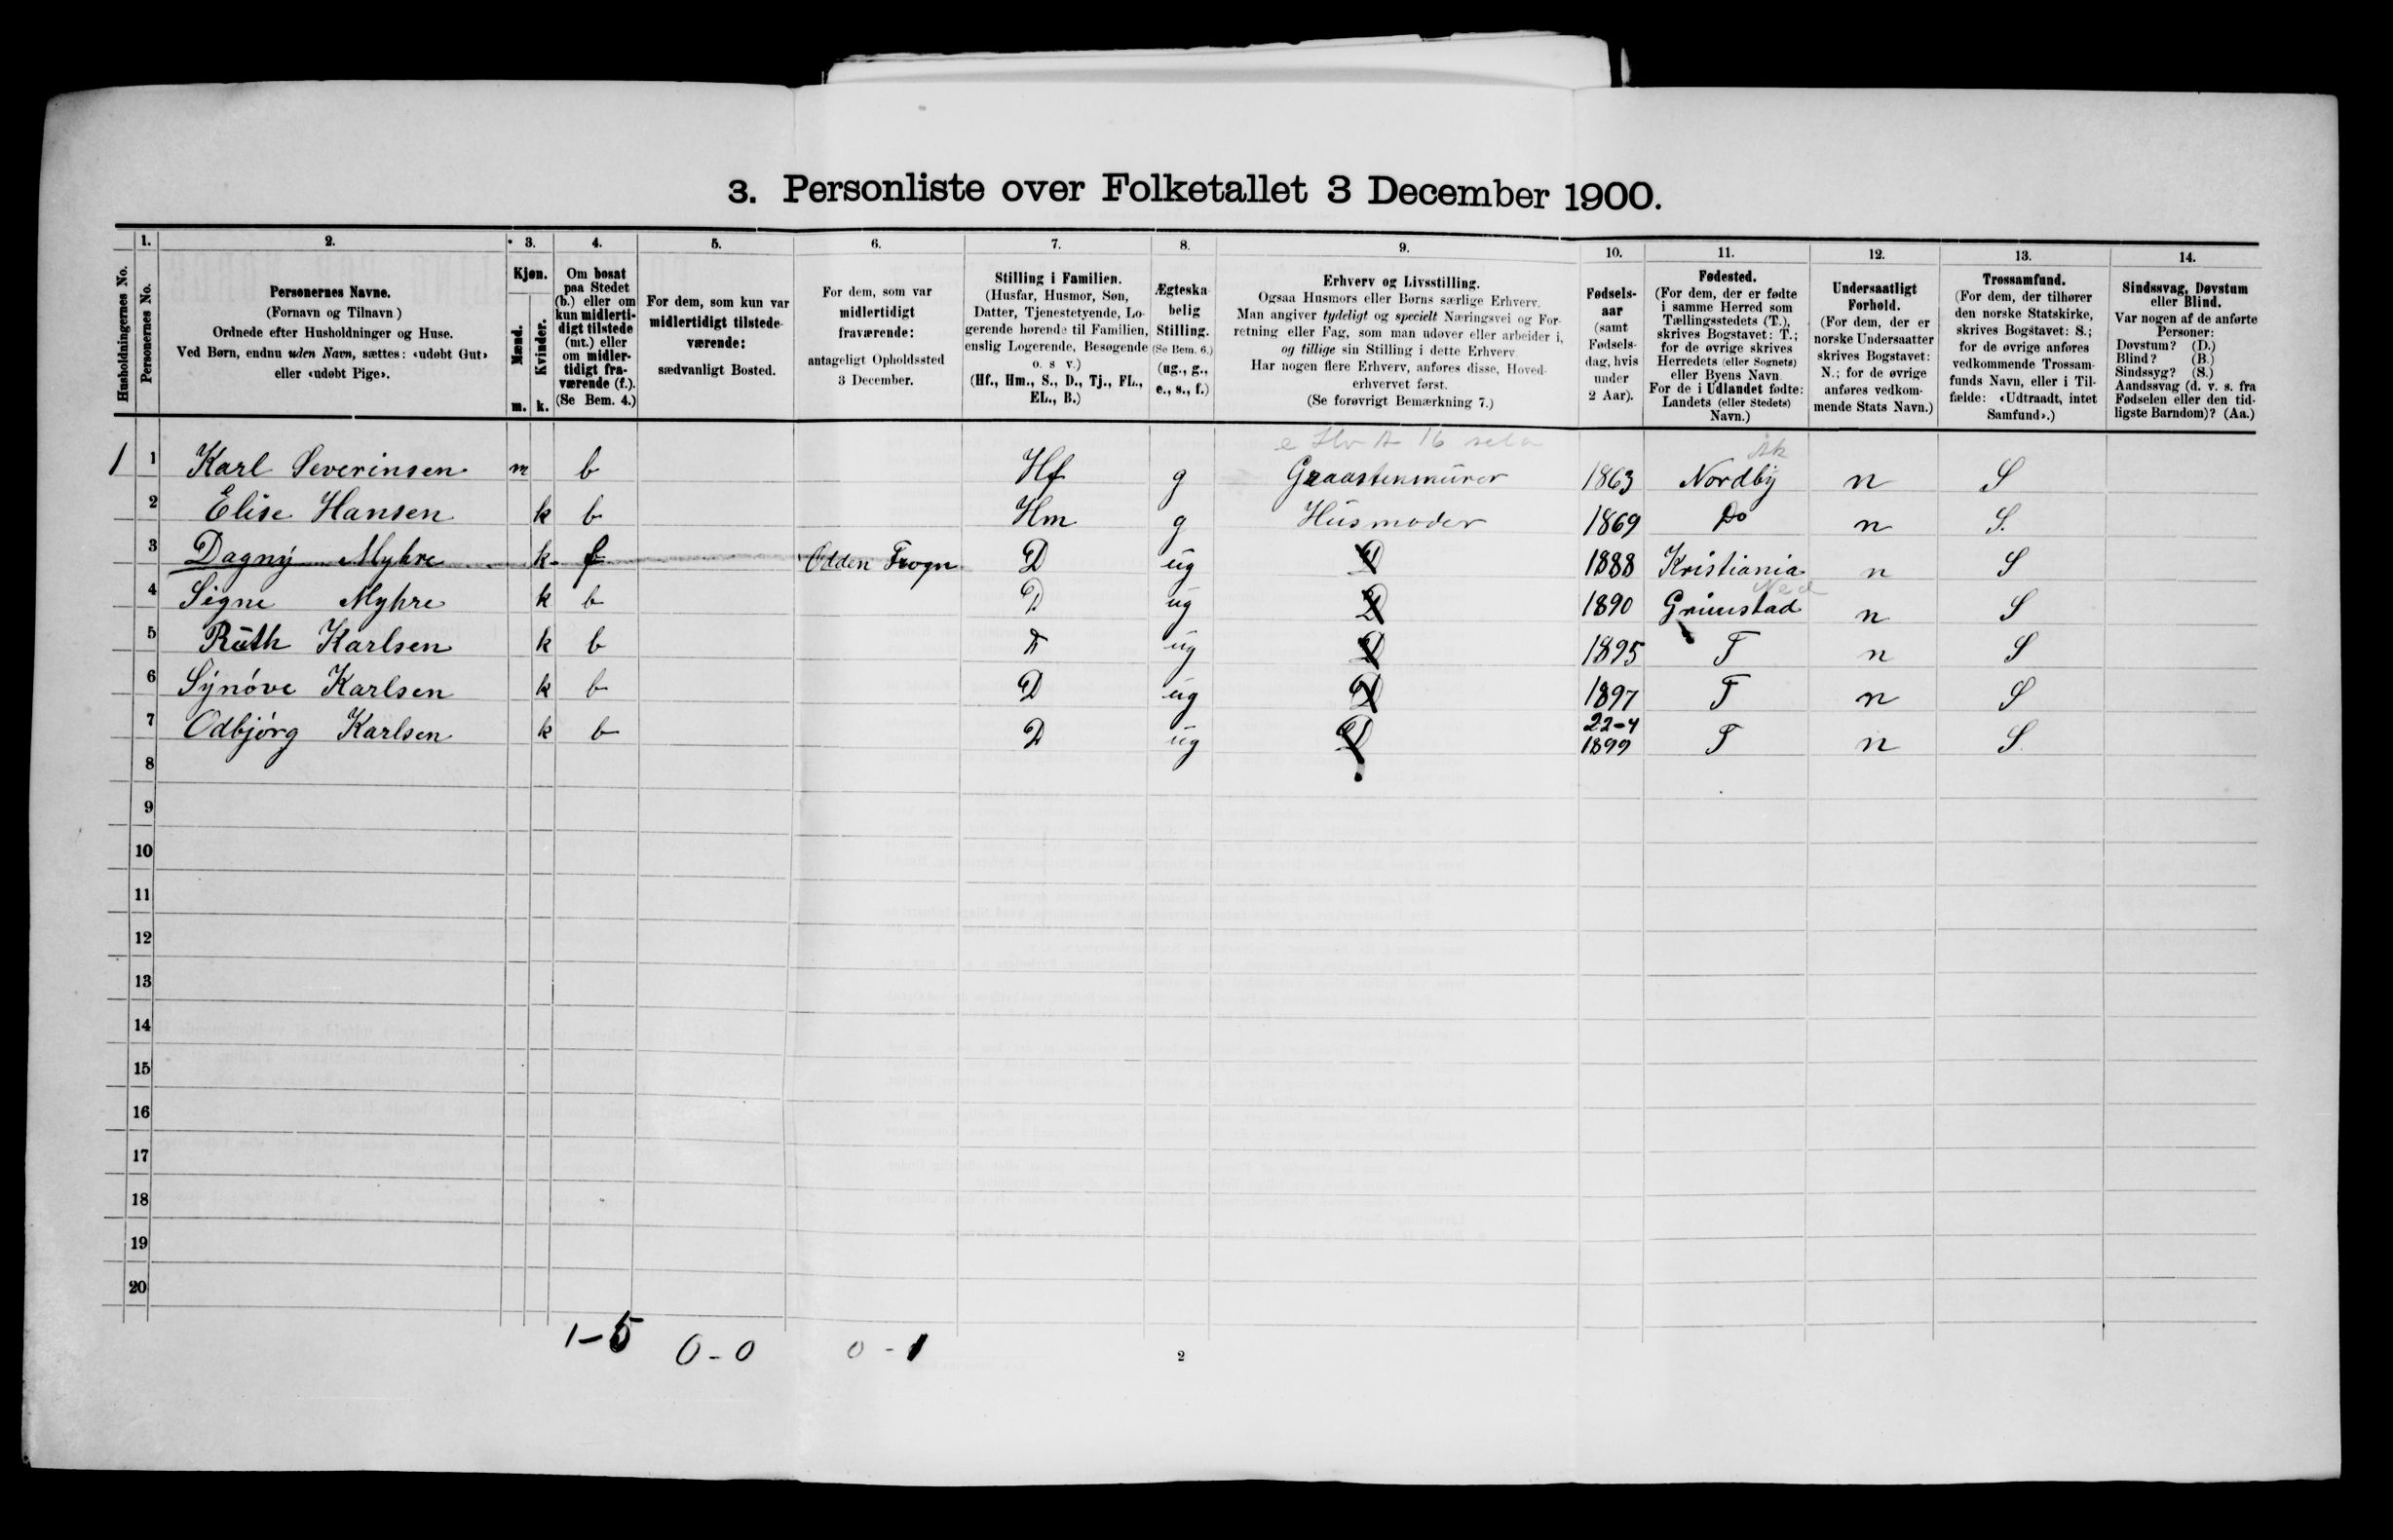 3. Personliste over Folketallet 3 December 1900.
Husholdningernes No.
1.
Personernes No.
2.
Personernes Navne.
(Fornavn og Tilnavn)
Ordnede efter Husholdninger og Huse.
Ved Børn, endnu uden Navn, sættes: «udøbt Gut»
eller «udøbt Pige».
3.
Kjøn.
Mænd.
Kvinder.
m. k.
4.
Om bosat
paa Stedet
(b.) eller om
kun midlerti-
digt tilstede
(mt.) eller
om midler-
tidigt fra-
værende (f.).
(Se Bem. 4.)
5.
For dem, som kun var
midlertidigt tilstede-
værende:
sædvanligt Bosted.
6.
For dem, som var
midlertidigt
fraværende:
antageligt Opholdssted
3 December.
7.
Stilling i Familien.
(Husfar, Husmor, Søn,
Datter, Tjenestetyende, Lo-
gerende hørende til Familien,
enslig Logerende, Besøgende
o. s v.)
(Hf., Hm., S., D., Tj., FL.,
EL., B.)
8.
Ægteska-
belig
Stilling.
(Se Bem. 6.)
(ug., g.,
e., s., f.)
9.
Erhverv og Livsstilling.
Ogsaa Husmors eller Børns særlige Erhverv.
Man angiver tydeligt og specielt Næringsvei og For-
retning eller Fag, som man udøver eller arbeider i,
og tillige sin Stilling i dette Erhverv
Har nogen flere Erhverv, anføres disse, Hoved-
erhvervet først.
(Se forøvrigt Bemærkning 7.)
10.
Fødsels-
aar
(samt
Fødsels-
dag, hvis
under
2 Aar).
11.
Fødested.
(For dem, der er fødte
i samme Herred som
Tællingsstedets (T.),
skrives Bogstavet: T.;
for de øvrige skrives
Herredets (eller Sognets)
eller Byens Navn.
For de i Udlandet fødte:
Landets (eller Stedets)
Navn.)
12.
Undersaatligt
Forhold.
(For dem, der er
norske Undersaatter
skrives Bogstavet:
N.; for de øvrige
anføres vedkom-
mende Stats Navn.)
13.
Trossamfund.
(For dem, der tilhører
den norske Statskirke,
skrives Bogstavet: S.;
for de øvrige anføres
vedkommende Trossam-
funds Navn, eller i Til-
fælde: «Udtraadt, intet
Samfund».)
14.
Sindssvag, Døvstum
eller Blind.
Var nogen af de anførte
Personer:
Døvstum? (D.)
Blind? (B.)
Sindssyg? (S.)
Aandssvag (d. v. s. fra
Fødselen eller den tid-
ligste Barndom)? (Aa.)
1 1 Karl Severinsen m b Hf g Graastenmurer 1863 Nordby Ak n S
2 Elise Hansen k b Hm g Husmoder 1869 Do n S.
3 Dagny Myhre k f Odden Frogn D ug D 1888 Kristiania n S
4 Signe Myhre k b D ug D 1890 Grimstad Ned n S
5 Ruth Karlsen k b D ug D 1895 T n S
6 Synöve Karlsen k b D ug D 1897 T n S
7 Odbjörg Karlsen k b D ug D 22-4 1899 T n S.
8
9
10
11
12
13
14
15
16
17
18
19
20
1-5 0-0 0-1
2